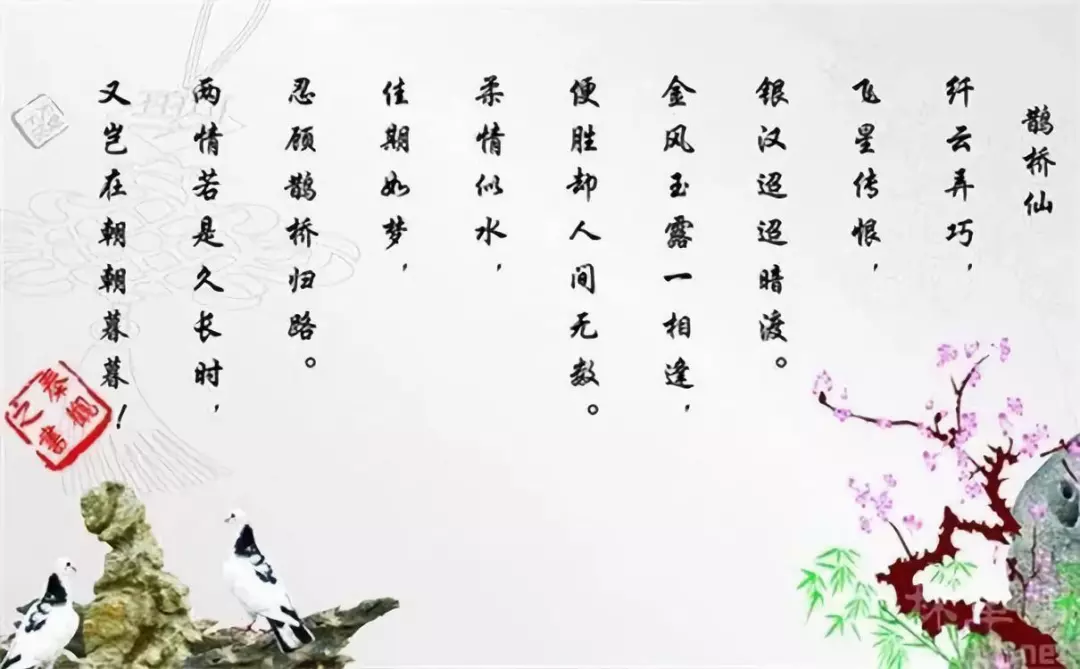 鹊桥仙
纤云弄巧，
飞星传恨，
银汉迢迢暗渡。
金风玉露一相逢，
便胜却人间无数。
柔情似水，
佳期如梦，
忍顾鹊桥归路。
两情若是久长时，
又岂在朝朝暮暮！
秦观
之書